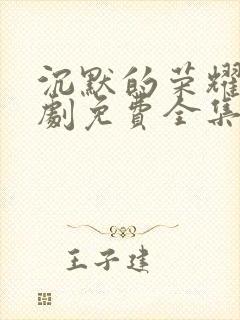 沉默的荣耀
劇免費全集
王子建